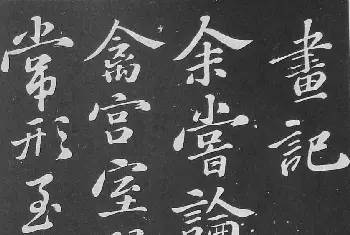 畫記
余嘗論
禽宮室
常形至